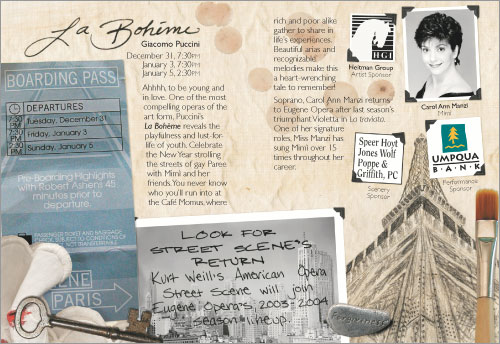 La Bohème
Giacomo Puccini
December 31, 7:30PM
January 3, 7:30PM
January 5, 2:30PM
Ahhhh, to be young and
in love. One of the most
compelling operas of the
art form, Puccini's
La Bohème reveals the
playfulness and lust-for-
life of youth. Celebrate
the New Year strolling
the streets of gay Paree
with Mimi and her
friends. You never know
who you'll run into at
the Café Momus, where
rich and poor alike
gather to share in
life's experiences.
Beautiful arias and
recognizable
melodies make this
a heart-wrenching
tale to remember!
Soprano, Carol Ann Manzi returns
to Eugene Opera after last season's
triumphant Violetta in La traviata.
One of her signature
roles, Miss Manzi has
sung Mimi over 15
times throughout her
career.
HGI
Heitman Group
Artist Sponsor
Carol Ann Manzi
Mimi
Speer Hoyt
Jones Wolf
Poppe &
Griffith, PC
Scenery
Sponsor
UMPQUA
BANK
Performance
Sponsor
BOARDING PASS
DEPARTURES
7:30 PM Tuesday, December 31
7:30 PM Friday, January 3
2:30 PM Sunday, January 5
Pre-Boarding Highlights
with Robert Ashens 45
minutes prior to
departure.
PASSENGER TICKET AND BAGGAGE
CHECK SUBJECT TO CONDITIONS OF
CONTRACT
ENE
PARIS
LOOK FOR
STREET SCENE'S
RETURN
Kurt Weill's American Opera
Street Scene will join
Eugene Opera's 2003-2004
season lineup.